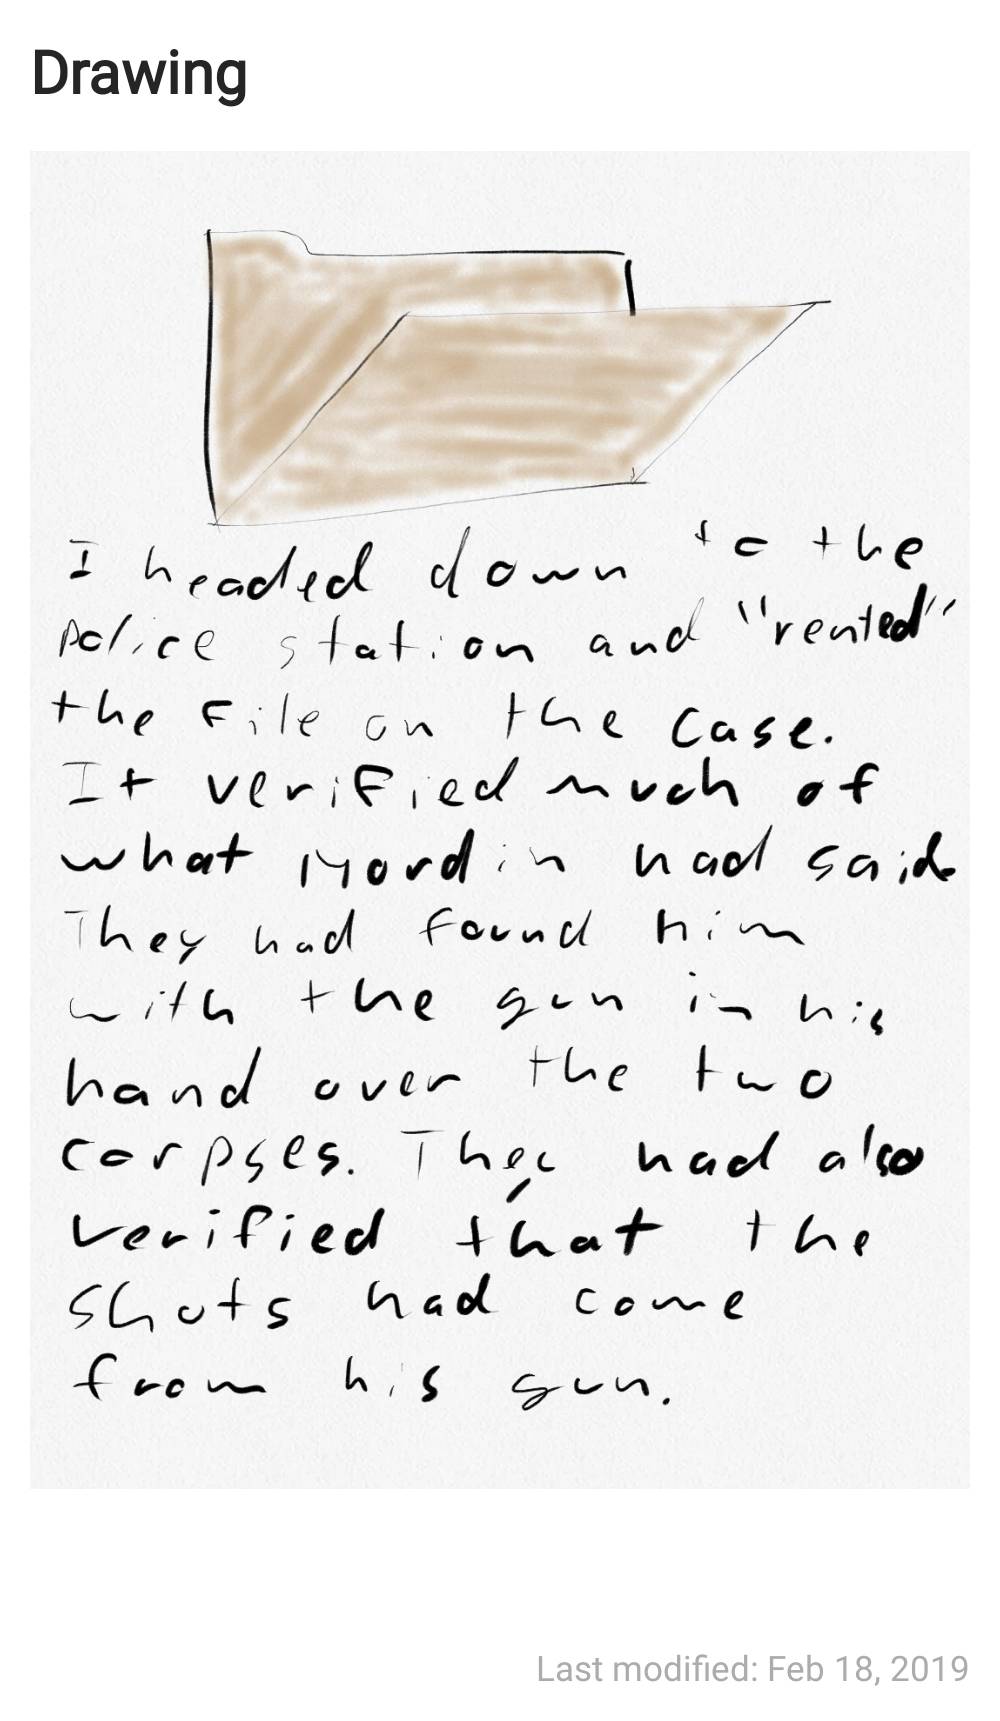 Drawing
I headed down to the
police station and "rented"
the File on the case.
It verified much of
what Mordin had said.
They had found him
with the gun in his
hand over the two
corpses. They had also
verified that the
shots had come
from his gun.
Last modified: Feb 18, 2019